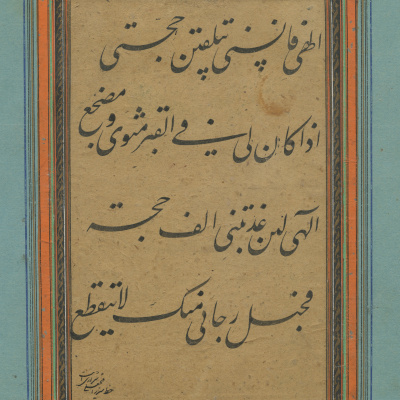 الهی فانسنی بتلقین حجتی
اذا کان لی فی القبر مثوی و مضجع
الهی لئن عذبتنی الف حجته
فحبل رجائی منک لا یتقطع